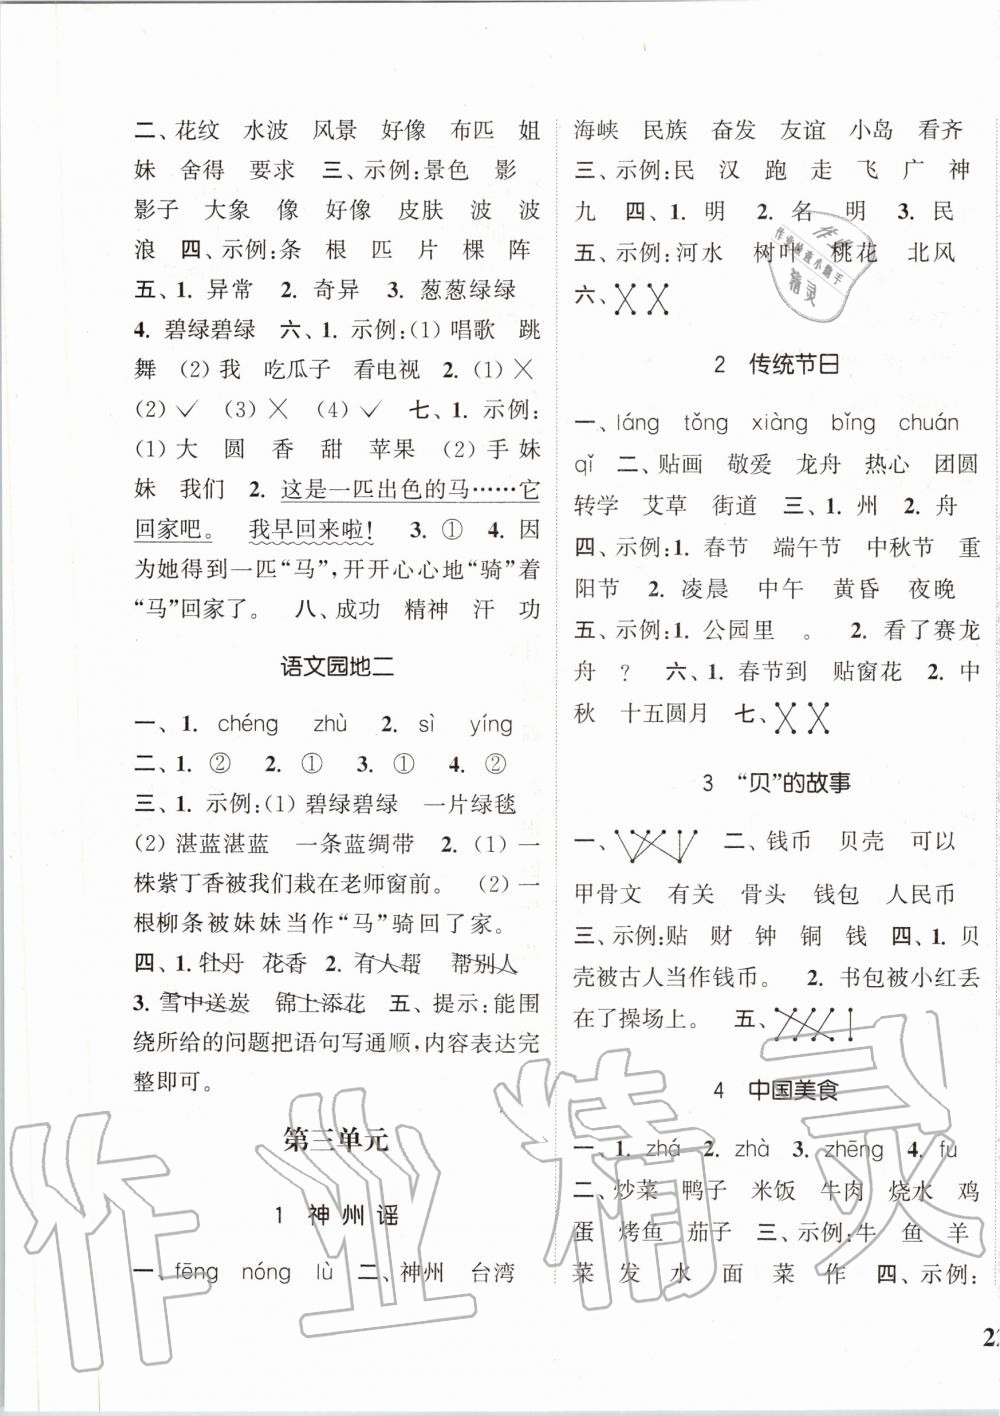 二、花纹 水波 风景 好像 布匹 姐
妹 舍得 要求 三、示例:景色 影
影子 大象 像 好像 皮肤 波 波
浪 四、示例:条 根 匹 片 棵 阵
五、1. 异常 2. 奇异 3. 葱葱绿绿
4. 碧绿碧绿 六、1. 示例:(1)唱歌 跳
舞 (2)我 吃瓜子 看电视 2. (1)╳
(2)✓ (3)╳ (4)✓ 七、1. 示例:
(1)大 圆 香 甜 苹果 (2)手 妹
妹 我们 2. 这是一匹出色的马……它
回家吧。 我早回来啦! 3. ① 4. 因
为她得到一匹“马”,开开心心地“骑”着
“马”回家了。 八、成功 精神 汗 功
语文园地二
一、1. chéng zhù 2. sì yíng
二、1. ② 2. ① 3. ① 4. ②
三、1. 示例:(1)碧绿碧绿 一片绿毯
(2)湛蓝湛蓝 一条蓝绸带 2. (1)一
株紫丁香被我们栽在老师窗前。 (2)一
根柳条被妹妹当作“马”骑回了家。
四、1. 牡丹 花香 2. 有人帮 帮别人
3. 雪中送炭 锦上添花 五、提示:能围
绕所给的问题把语句写通顺,内容表达完
整即可。
第三单元
1 神州谣
一、fēng nóng lù 二、神州 台湾
海峡 民族 奋发 友谊 小岛 看齐
三、示例:民 汉 跑 走 飞 广 神
九 四、1. 明 2. 名 明 3. 民
五、示例:河水 树叶 桃花 北风
六、
2 传统节日
一、láng tǒng xiàng bǐng chuán
qǐ 二、贴画 敬爱 龙舟 热心 团圆
转学 艾草 街道 三、1. 州 2. 舟
四、示例:1. 春节 端午节 中秋节 重
阳节 2. 凌晨 中午 黄昏 夜晚
五、示例:1. 公园里 。 2. 看了赛龙
舟 ? 六、1. 春节到 贴窗花 2. 中
秋 十五圆月 七、
3 “贝”的故事
一、 二、钱币 贝壳 可以
甲骨文 有关 骨头 钱包 人民币
三、示例:贴 财 钟 铜 钱 四、1. 贝
壳被古人当作钱币。 2. 书包被小红丢
在了操场上。 五、
4 中国美食
一、1. zhá 2. zhà 3. zhēng 4. fu
二、炒菜 鸭子 米饭 牛肉 烧水 鸡
蛋 烤鱼 茄子 三、示例:牛 鱼 羊
菜 发 水 面 菜 作 四、示例:
作业精灵
作业检查小助手
精灵